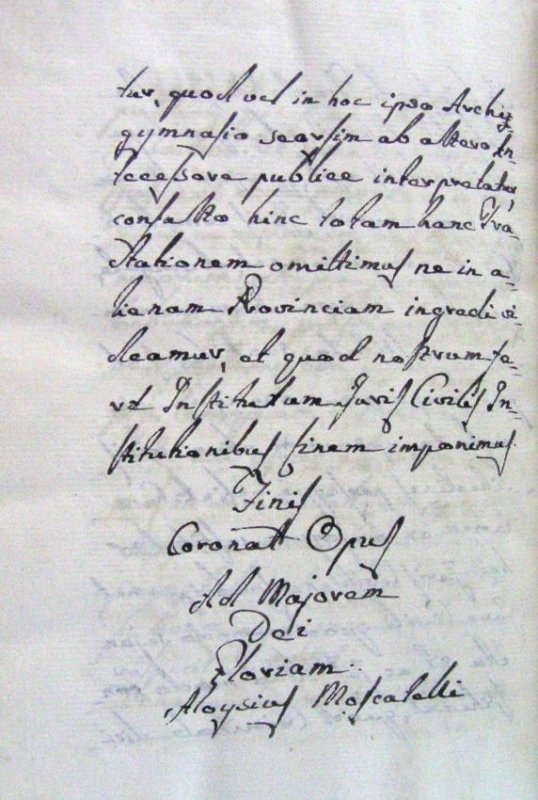 tur, quod vel in hoc ipso Archy-
gymnasio seorsim ab altero In-
tecessore publice interpretatur,
consulto hinc totam hanc Tra-
ctationem omittimus ne in a-
lienam Provinciam ingredi vi-
deamur, et quod nostrum fe-
rt Institutum Juris Civilis In-
stitutionibus finem imponimus
Finis
Coronat Opus
Ad Majorem
Dei
Gloriam
Aloysius Moscatelli